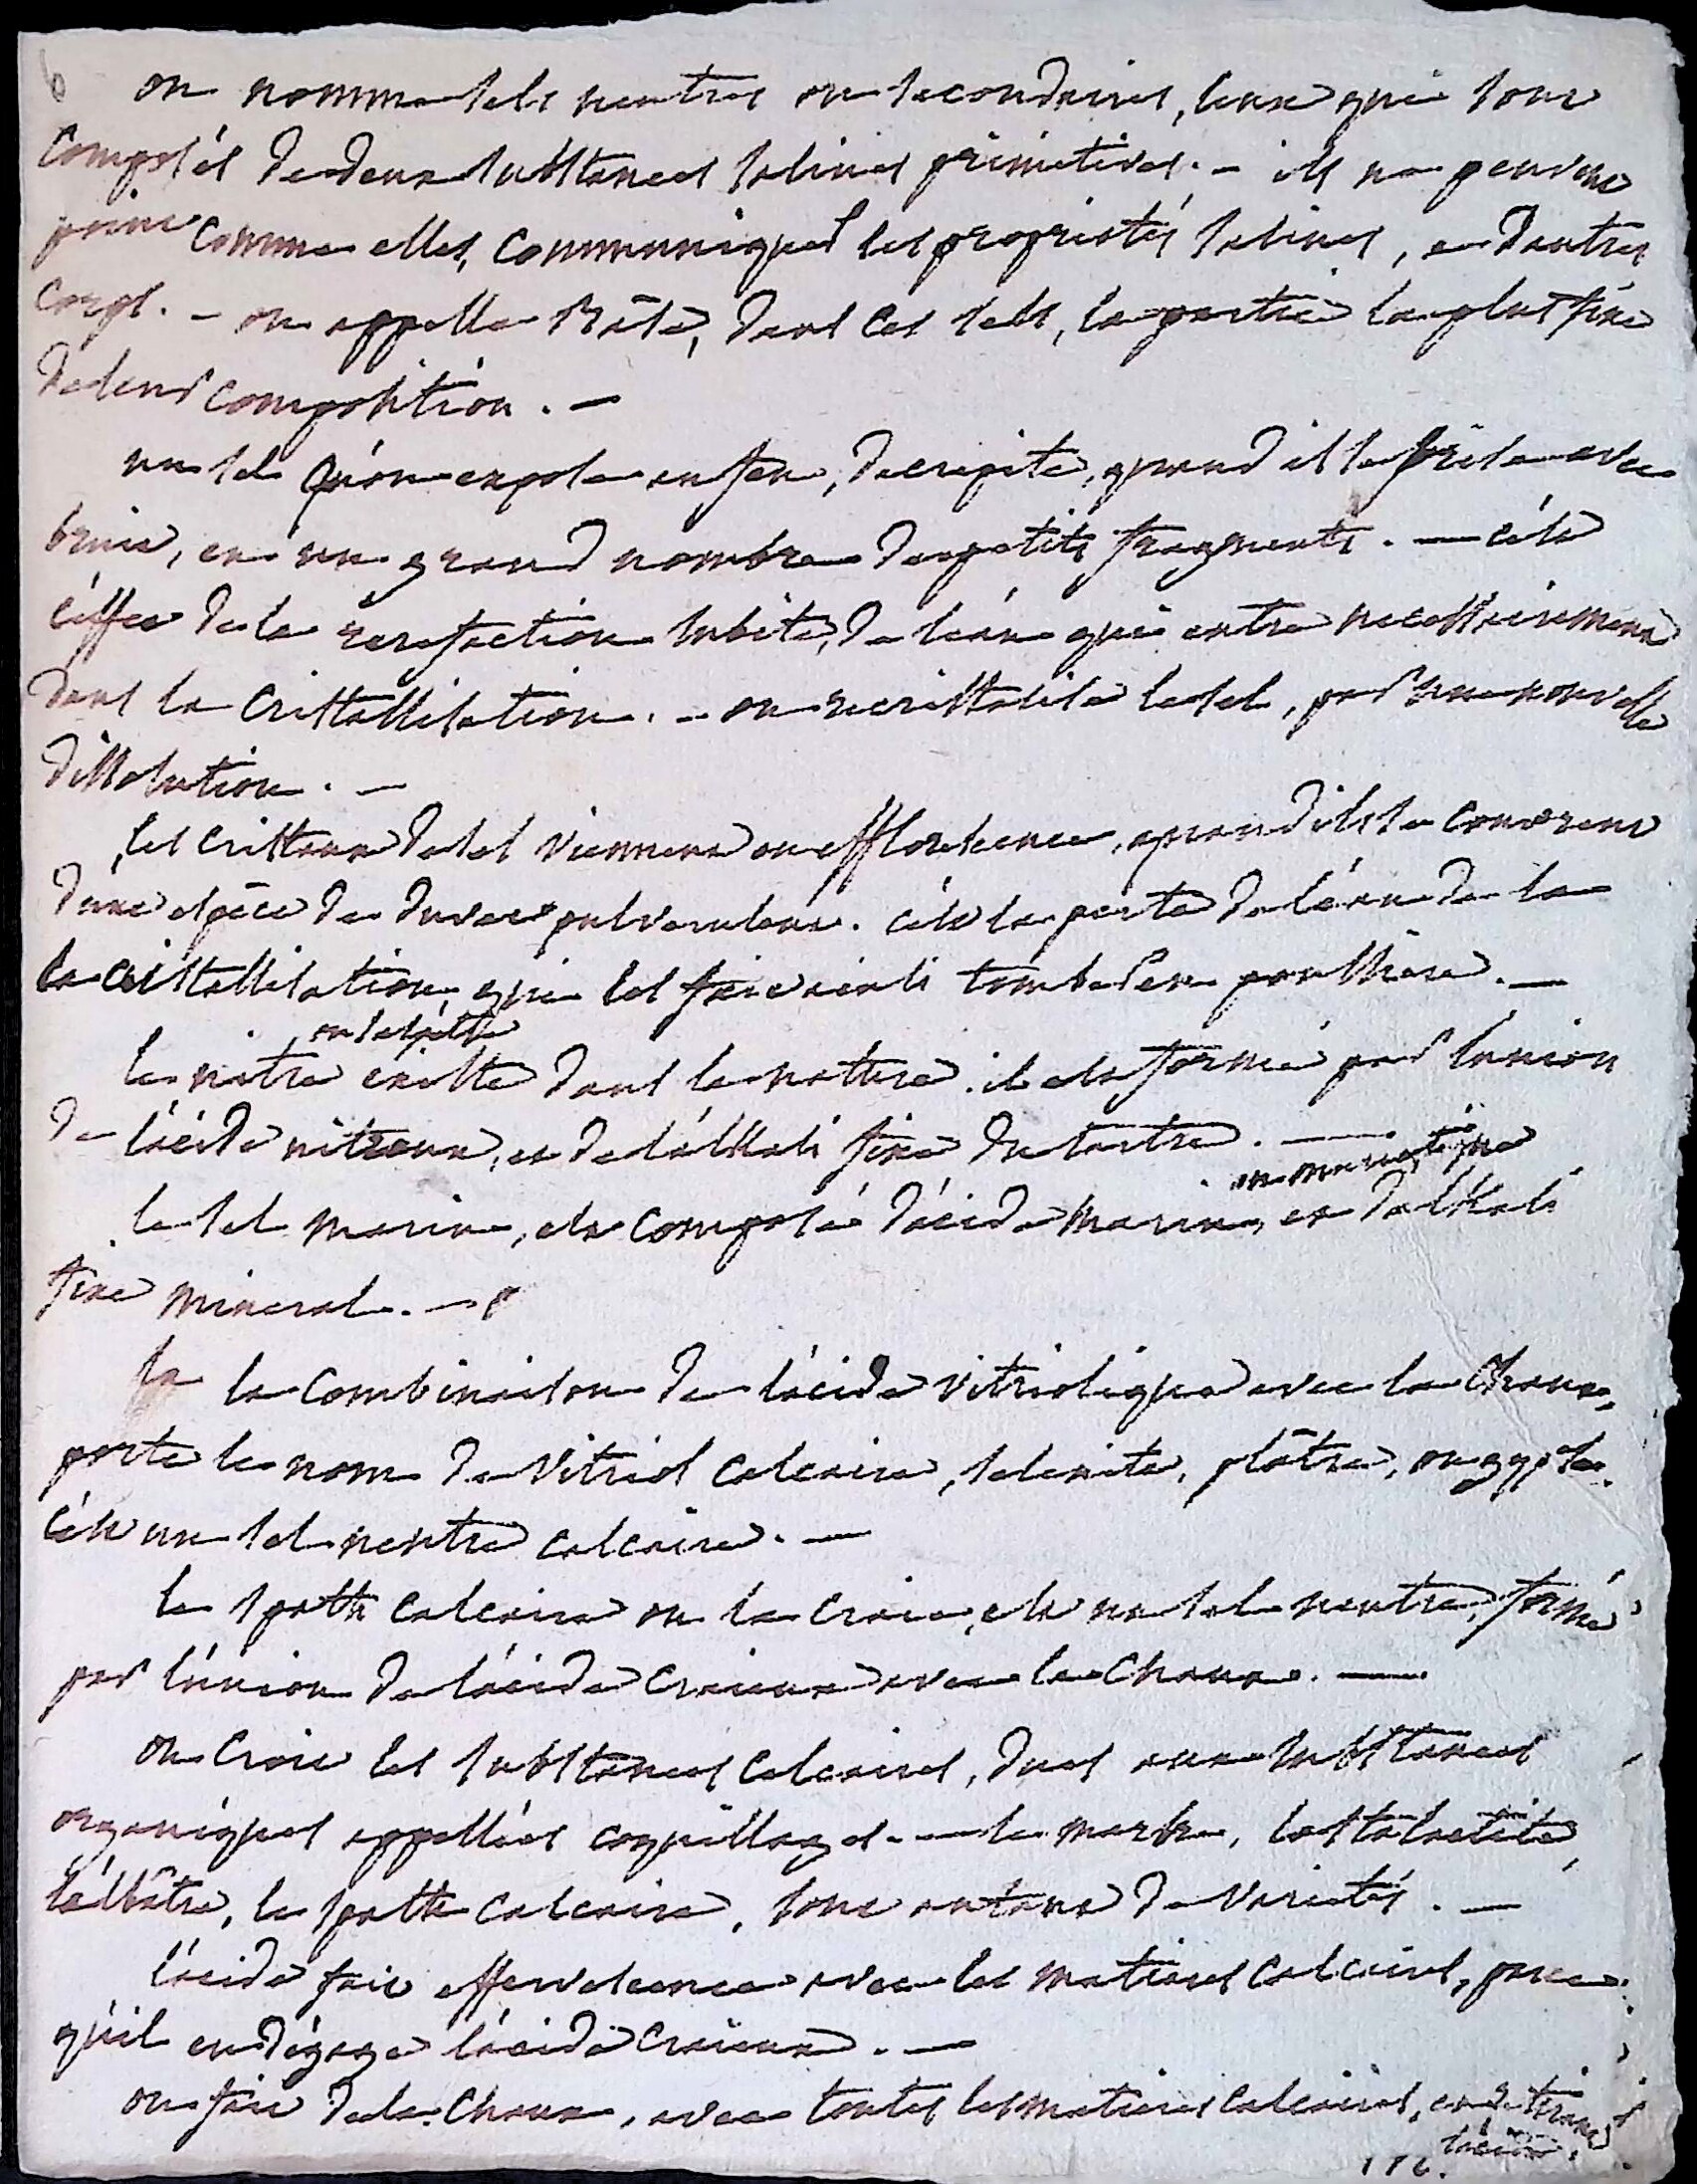 6
on nomme sels neutres ou secondaires, ceux qui sont
composés de deux substances salines primitives. - ils ne peuvent
point comme elles, communiquer les proprietés salines, a d'autres
corps. - on appelle Base, dans ces sels, la partie la plus fixe
de leur composition. -
un sel qu'on expose au feu, decrepite, quand il se brise avec
bruit, en un grand nombre de petits fragments. - c'est
l'effet de la rarefaction subite, de l'eau qui entre necessairement
dans la cristallisation. - on recristalise le sel, par une nouvelle
dissolution. -
les cristaux de sel viennent en efflorescence, quand ils se couvrent
d'une espèce de duvet pulverulent. c'est la perte de l'eau de la
la cristallisation, qui les fait ainsi tomber en poussiere. -
ou salpêtre
le nitre existe dans la nature. il est formé par l'union
de l'acide nitreux, et de l'alkali fixe du tartre. -
ou muriatique
le sel marin, est composé d'acide marin, et d'alkali
fixe mineral. -
la combinaison de l'acide vitriolique avec la chaux,
porte le nom de vitriol calcaire, selenite, plâtre, ou gypse.
c'est un sel neutre calcaire. -
le spath calcaire ou la craie, est un sel neutre, formé
par l'union de l'acide craieux avec la chaux. -
on croit les substances calcaires, dues aux substances
organiques appellées coquillages. - le marbre, la stalactite,
l'albâtre, le spath calcaire, sont autant de varietés. -
l'acide fait effervescence avec les matieres calcaires, parce
qu'il en dégage l'acide craieux. -
on fait de la chaux, avec toutes les matieres calcaires, en retirant
l'acide.